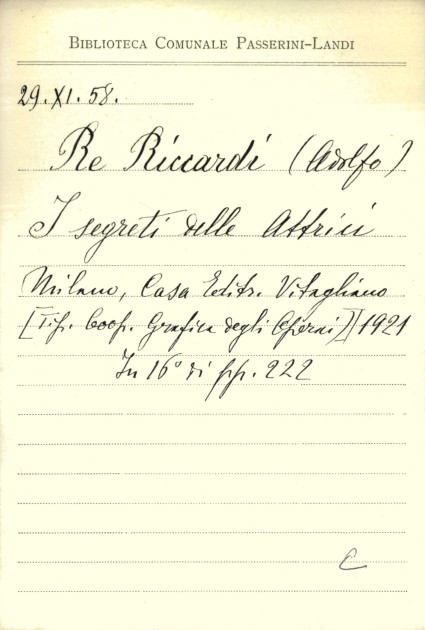 BIBLIOTECA COMUNALE PASSERINI-LANDI
29.XI.58.
Re Riccardi (Adolfo)
I segreti delle Attrici
Milano, Casa Editr. Vitagliano
[Tip. Coop. Grafica degli Operai)] 1921
In 16° di pp. 222
C